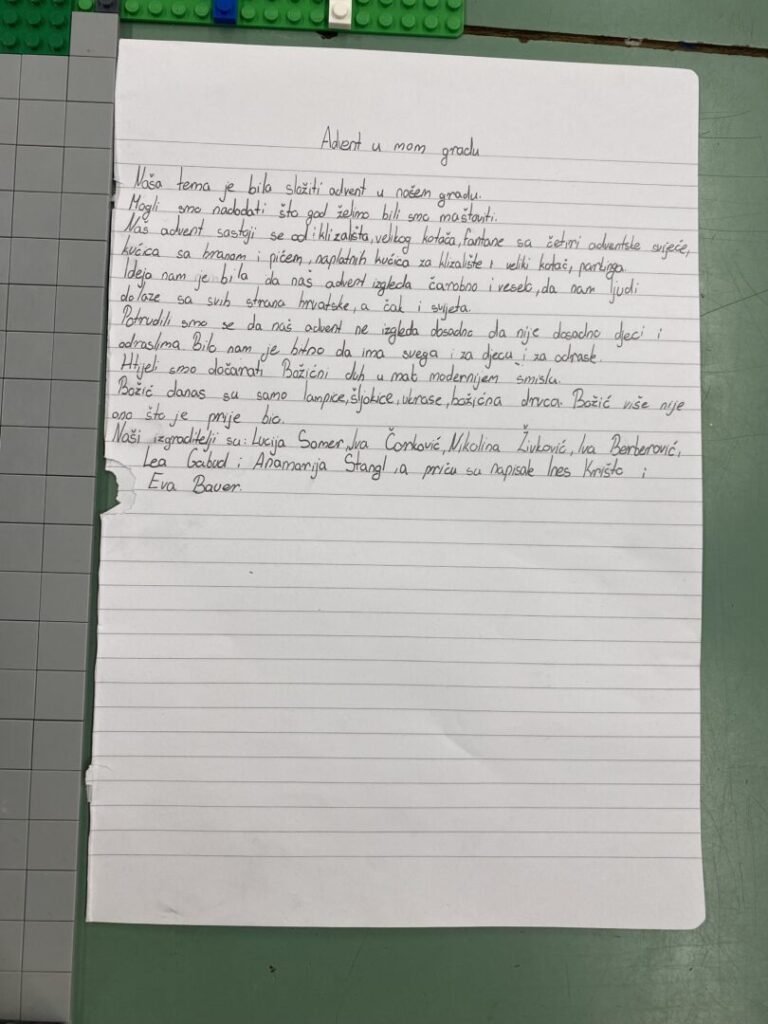 Advent u mom gradu
Naša tema je bila složiti advent u našem gradu.
Mogli smo nadodati što god želimo bili smo maštoviti.
Naš advent sastoji se od: klizališta, velikog kotača, fontane sa četiri adventske svijeće,
kućica sa hranom i pićem, naplatnih kućica za klizalište i veliki kotač, parkinga.
Ideja nam je bila da naš advent izgleda čarobno i veselo, da nam ljudi
dolaze sa svih strana hrvatske, a čak i svijeta.
Potrudili smo se da naš advent ne izgleda dosadno da nije dosadno djeci i
odraslima. Bilo nam je bitno da ima svega i za djecu i za odrasle.
Htjeli smo dočarati Božićni duh u malo modernijem smislu.
Božić danas su samo lampice, šljokice, ukrase, božićna drvca. Božić više nije
ono što je prije bio.
Naši izgraditelji su: Lucija Somer, Iva Čorković, Nikolina Živković, Iva Berberović,
Lea Gabud i Anamarija Štangl, a priču su napisale Ines Krišto i
Eva Bauer.